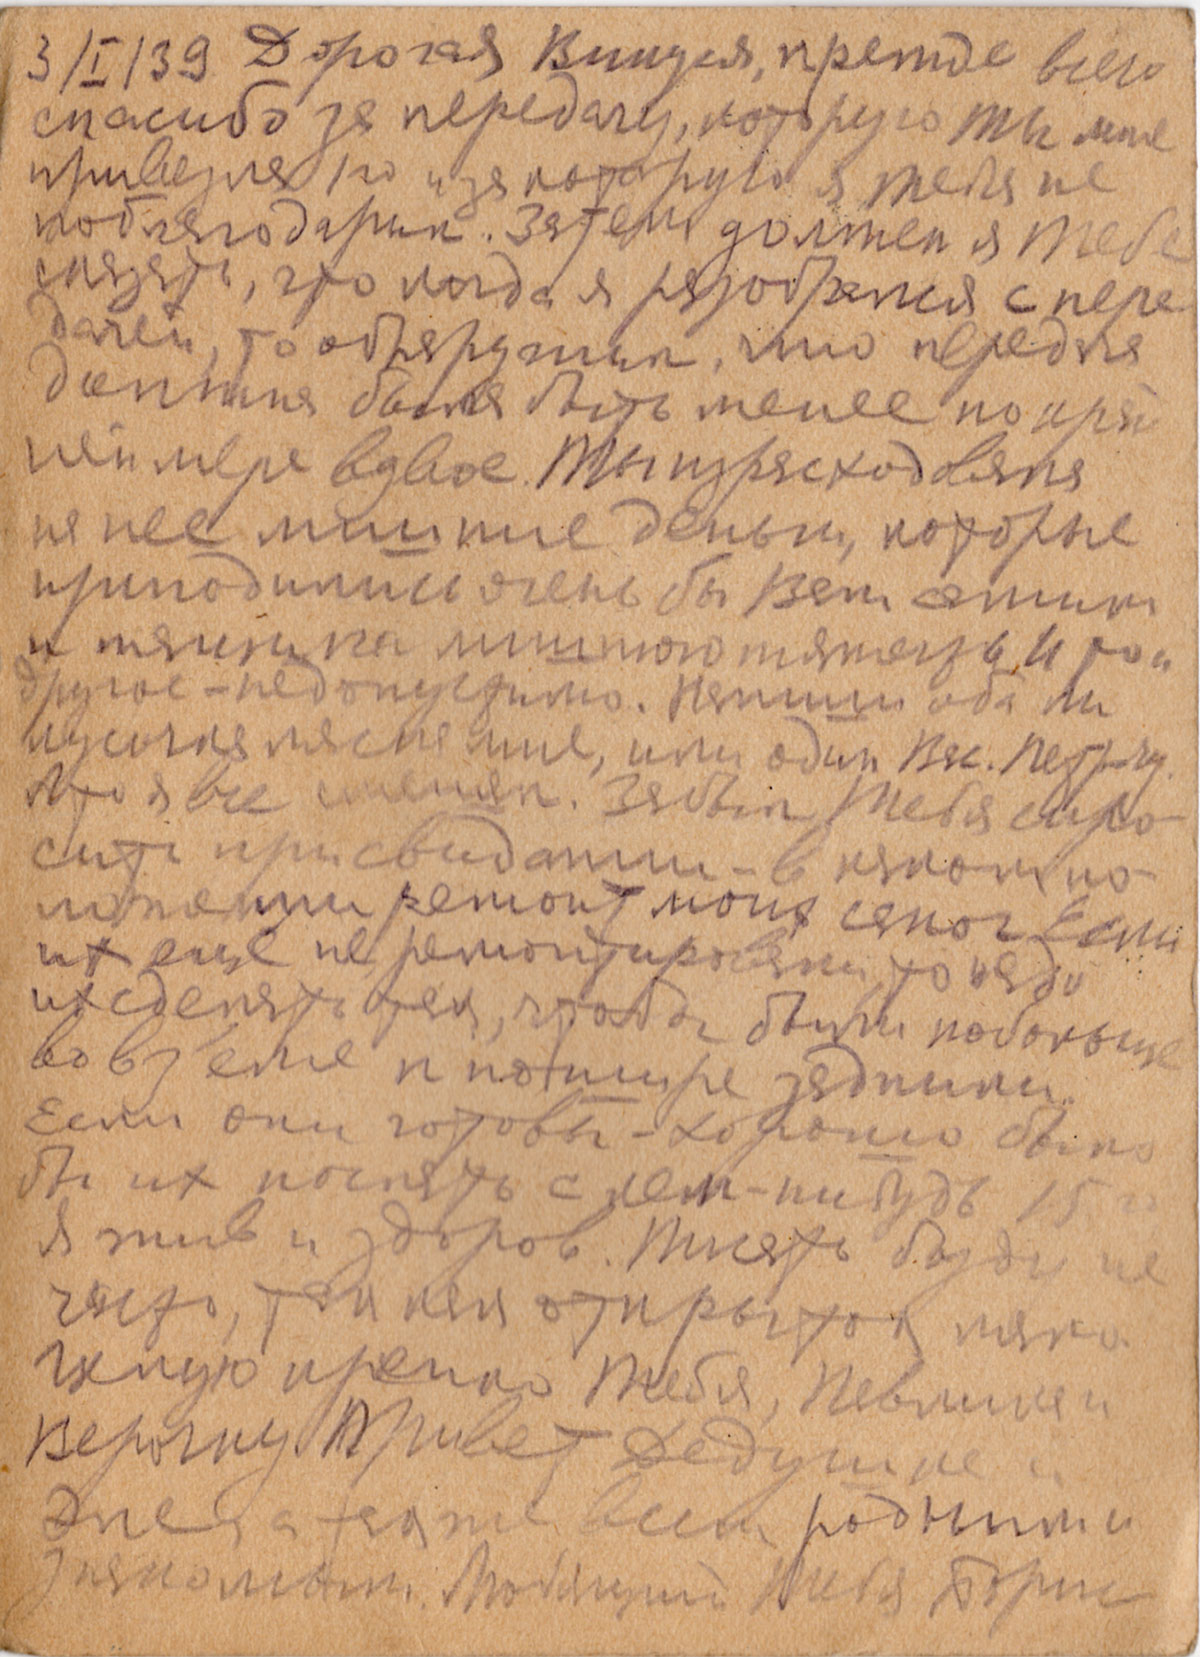 3/I/39 Дорогая Викуся, прежде всего
спасибо за передачу, которую ты мне
привезла и за которую я тебя не
поблагодарил. Затем должен я тебе
сказать, что когда я разобрался с пере
дачей, то обнаружил, что передача
должна была быть менее по край
ней мере вдвое. Ты израсходовала
на нее лишние деньги, которые
пригодились очень бы Вам самим
и тащила лишнюю тяжесть. И то и
другое - недопустимо. Напиши оба ли
кусочка мне, или один Вас. Петр-чу.
Забыл тебя спро
сить при свидании - в каком по
ложении ремонт моих сапог. Если
их еще не ремонтировали, то надо
их сделать так, чтобы были побольше
в подъеме и пошире задники.
Если они готовы - хорошо было
бы их послать с кем-нибудь 15 го
Я жив и здоров. Писать буду не
часто, так как открыток мало.
Целую крепко тебя, и
Верочку. Привет Дедушке и
а также всем родным и
знакомым. Любящий тебя Борис